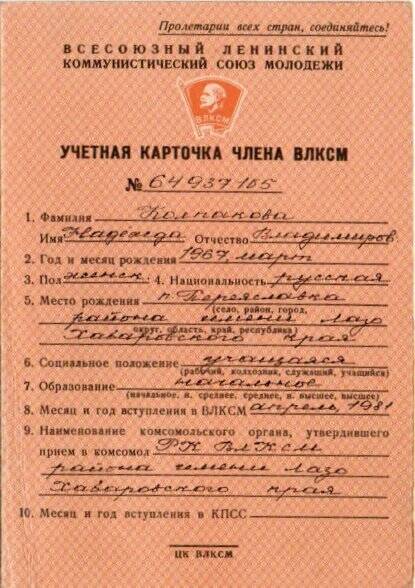 Пролетарии всех стран, соединяйтесь!
ВСЕСОЮЗНЫЙ ЛЕНИНСКИЙ
КОММУНИСТИЧЕСКИЙ СОЮЗ МОЛОДЕЖИ
ВЛКСМ
УЧЕТНАЯ КАРТОЧКА ЧЛЕНА ВЛКСМ
№ 64937105
1. Фамилия Колпакова
Имя Надежда Отчество Владимиров.
2. Год и месяц рождения 1967 март
3. Пол женск. 4. Национальность русская
5. Место рождения п. Переяславка
(село, район, город,
района имени Лазо
округ, область, край, республика)
Хабаровского края
6. Социальное положение учащаяся
(рабочий, колхозник, служащий, учащийся)
7. Образование начальное
(начальное, н. среднее, среднее, н. высшее, высшее)
8. Месяц и год вступления в ВЛКСМ апрель, 1981
9. Наименование комсомольского органа, утвердившего
прием в комсомол РК ВЛКСМ
района имени Лазо
Хабаровского края
10. Месяц и год вступления в КПСС
ЦК ВЛКСМ